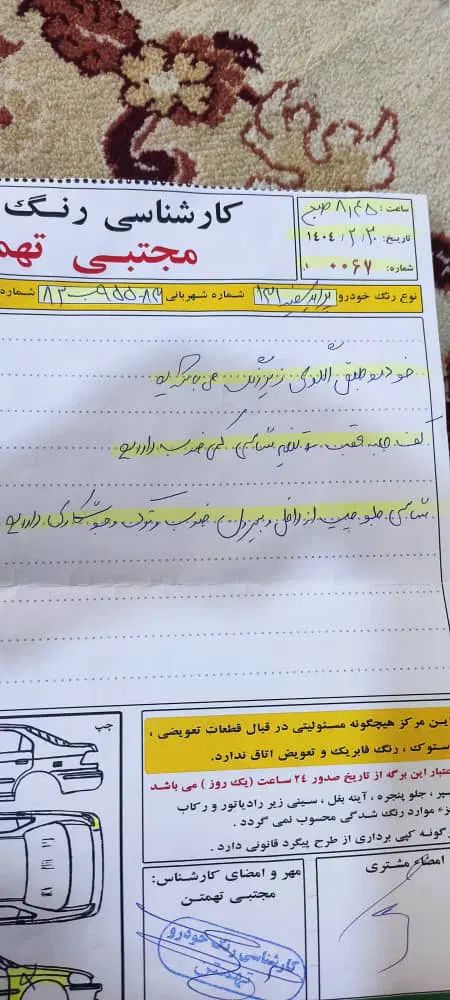 کارشناسی رنگ
مجتبی تهمت
ساعت: ۸:۴۵ صبح
تاریخ: ۱۴۰۴/۲/۲۰
شماره: ۰۰۶۷
نوع رنگ خودرو پراید سفید ۱۳۱ شماره شهربانی شماره
خودرو طبق الگوی زیر رنگ می باشد
کف عقب ته شاسی کمی ضرب دارد
شاسی جلو چپ از داخل و بیرون ضرب و ترک و جوشکاری دارد
این مرکز هیچگونه مسئولیتی در قبال قطعات تعویضی ،
ستوک ، رنگ فابریک و تعویض اتاق ندارد.
عتبار این برگه از تاریخ صدور ۲۴ ساعت (یک روز) می باشد
سپر ، جلو پنجره ، آینه بغل ، سینی زیر رادیاتور و رکاب
جزء موارد رنگ شدگی محسوب نمی گردد .
رگونه کپی برداری از طرح پیگرد قانونی دارد .
چپ
مهر و امضای کارشناس:
مجتبی تهمتن
امضاء مشتری
کارشناسی رنگ خودرو
تهمتن